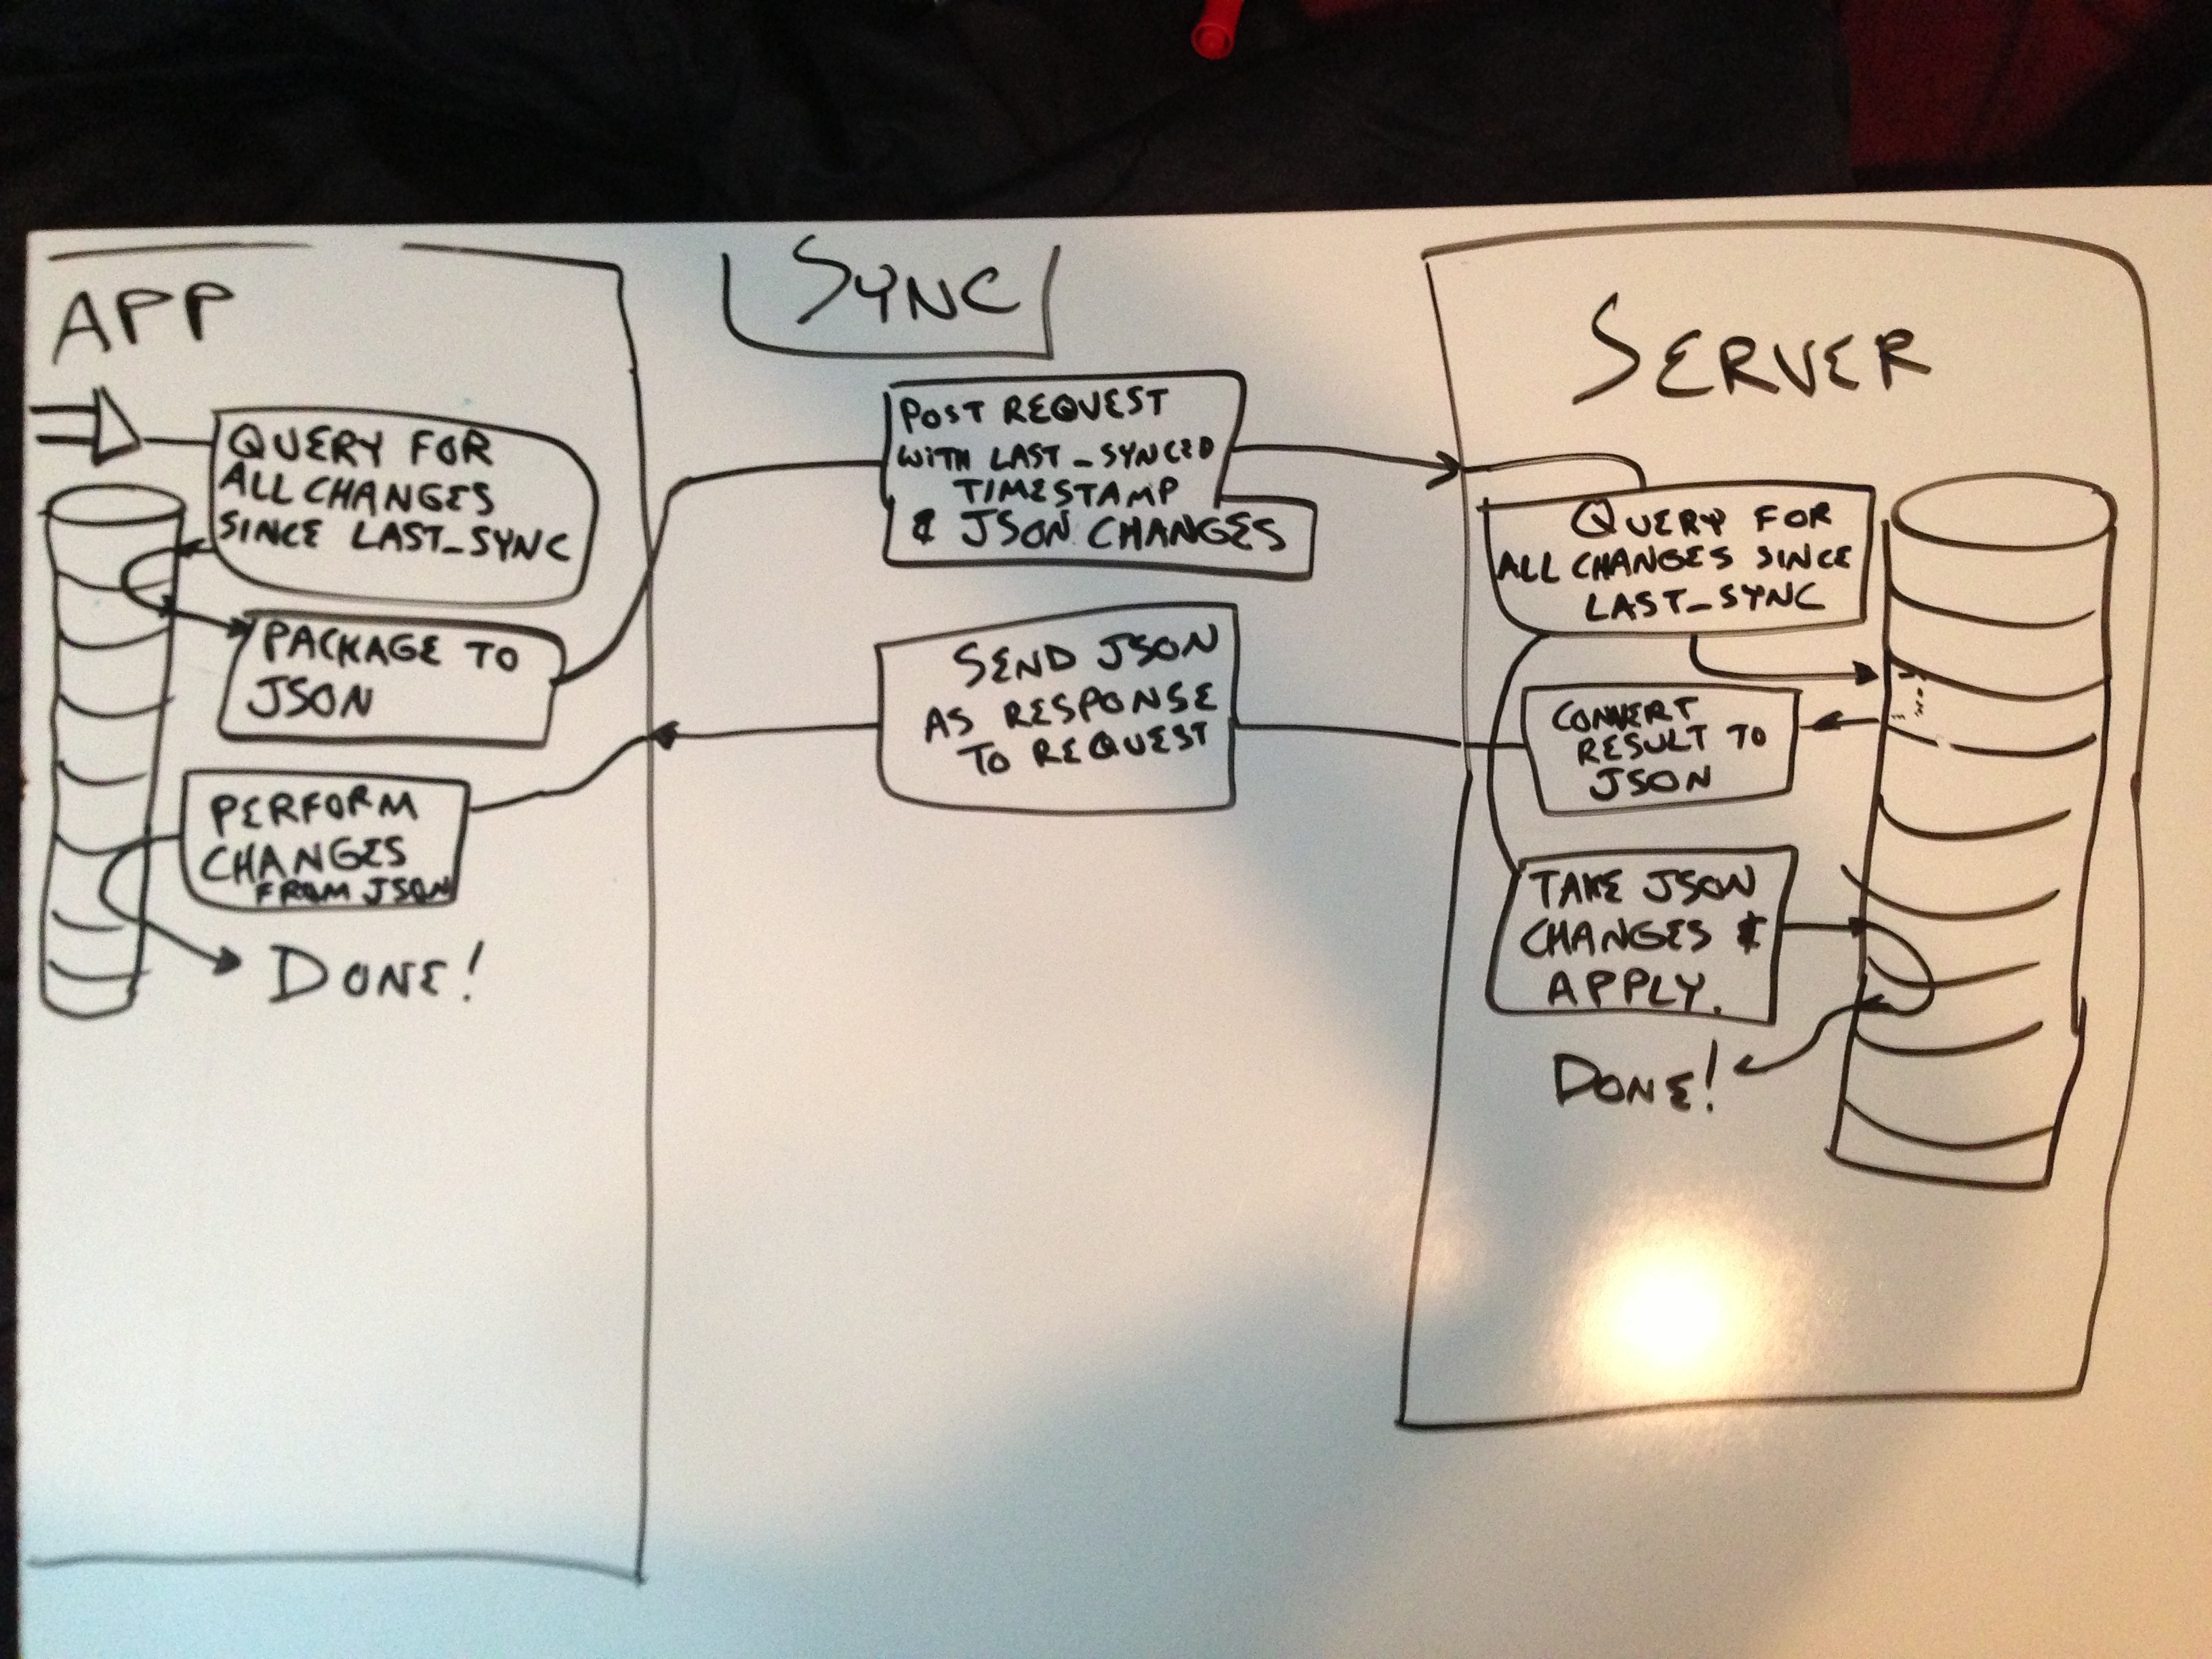 APP
QUERY FOR
ALL CHANGES
SINCE LAST_SYNC
PACKAGE TO
JSON
PERFORM
CHANGES
FROM JSON
DONE!
SYNC
POST REQUEST
WITH LAST_SYNCED
TIMESTAMP
& JSON CHANGES
SEND JSON
AS RESPONSE
TO REQUEST
SERVER
QUERY FOR
ALL CHANGES SINCE
LAST_SYNC
CONVERT
RESULT TO
JSON
TAKE JSON
CHANGES &
APPLY.
DONE!